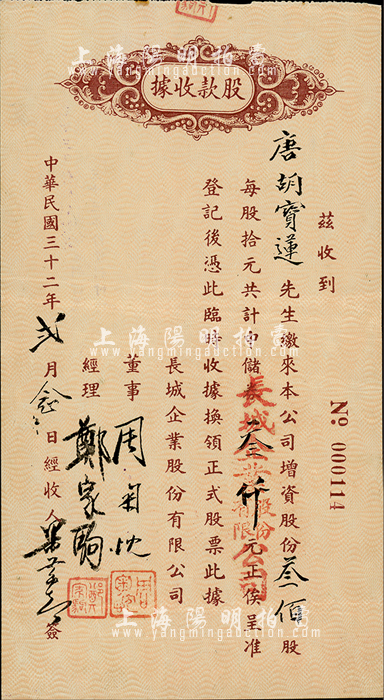 股款收據
茲收到
唐胡寶蓮先生繳來本公司增資股份叁佰股
每股拾元共計中儲券叁仟元正俟呈准
登記後憑此臨時收據換領正式股票此據
長城企業股份有限公司
董事
經理 鄭家駒
中華民國三十二年弍月念日經收人簽
No. 000114
上海陽明拍賣
www.yangmingauction.com
上海陽明拍賣
www.yangmingauction.com
上海陽明拍賣
www.yangmingauction.com